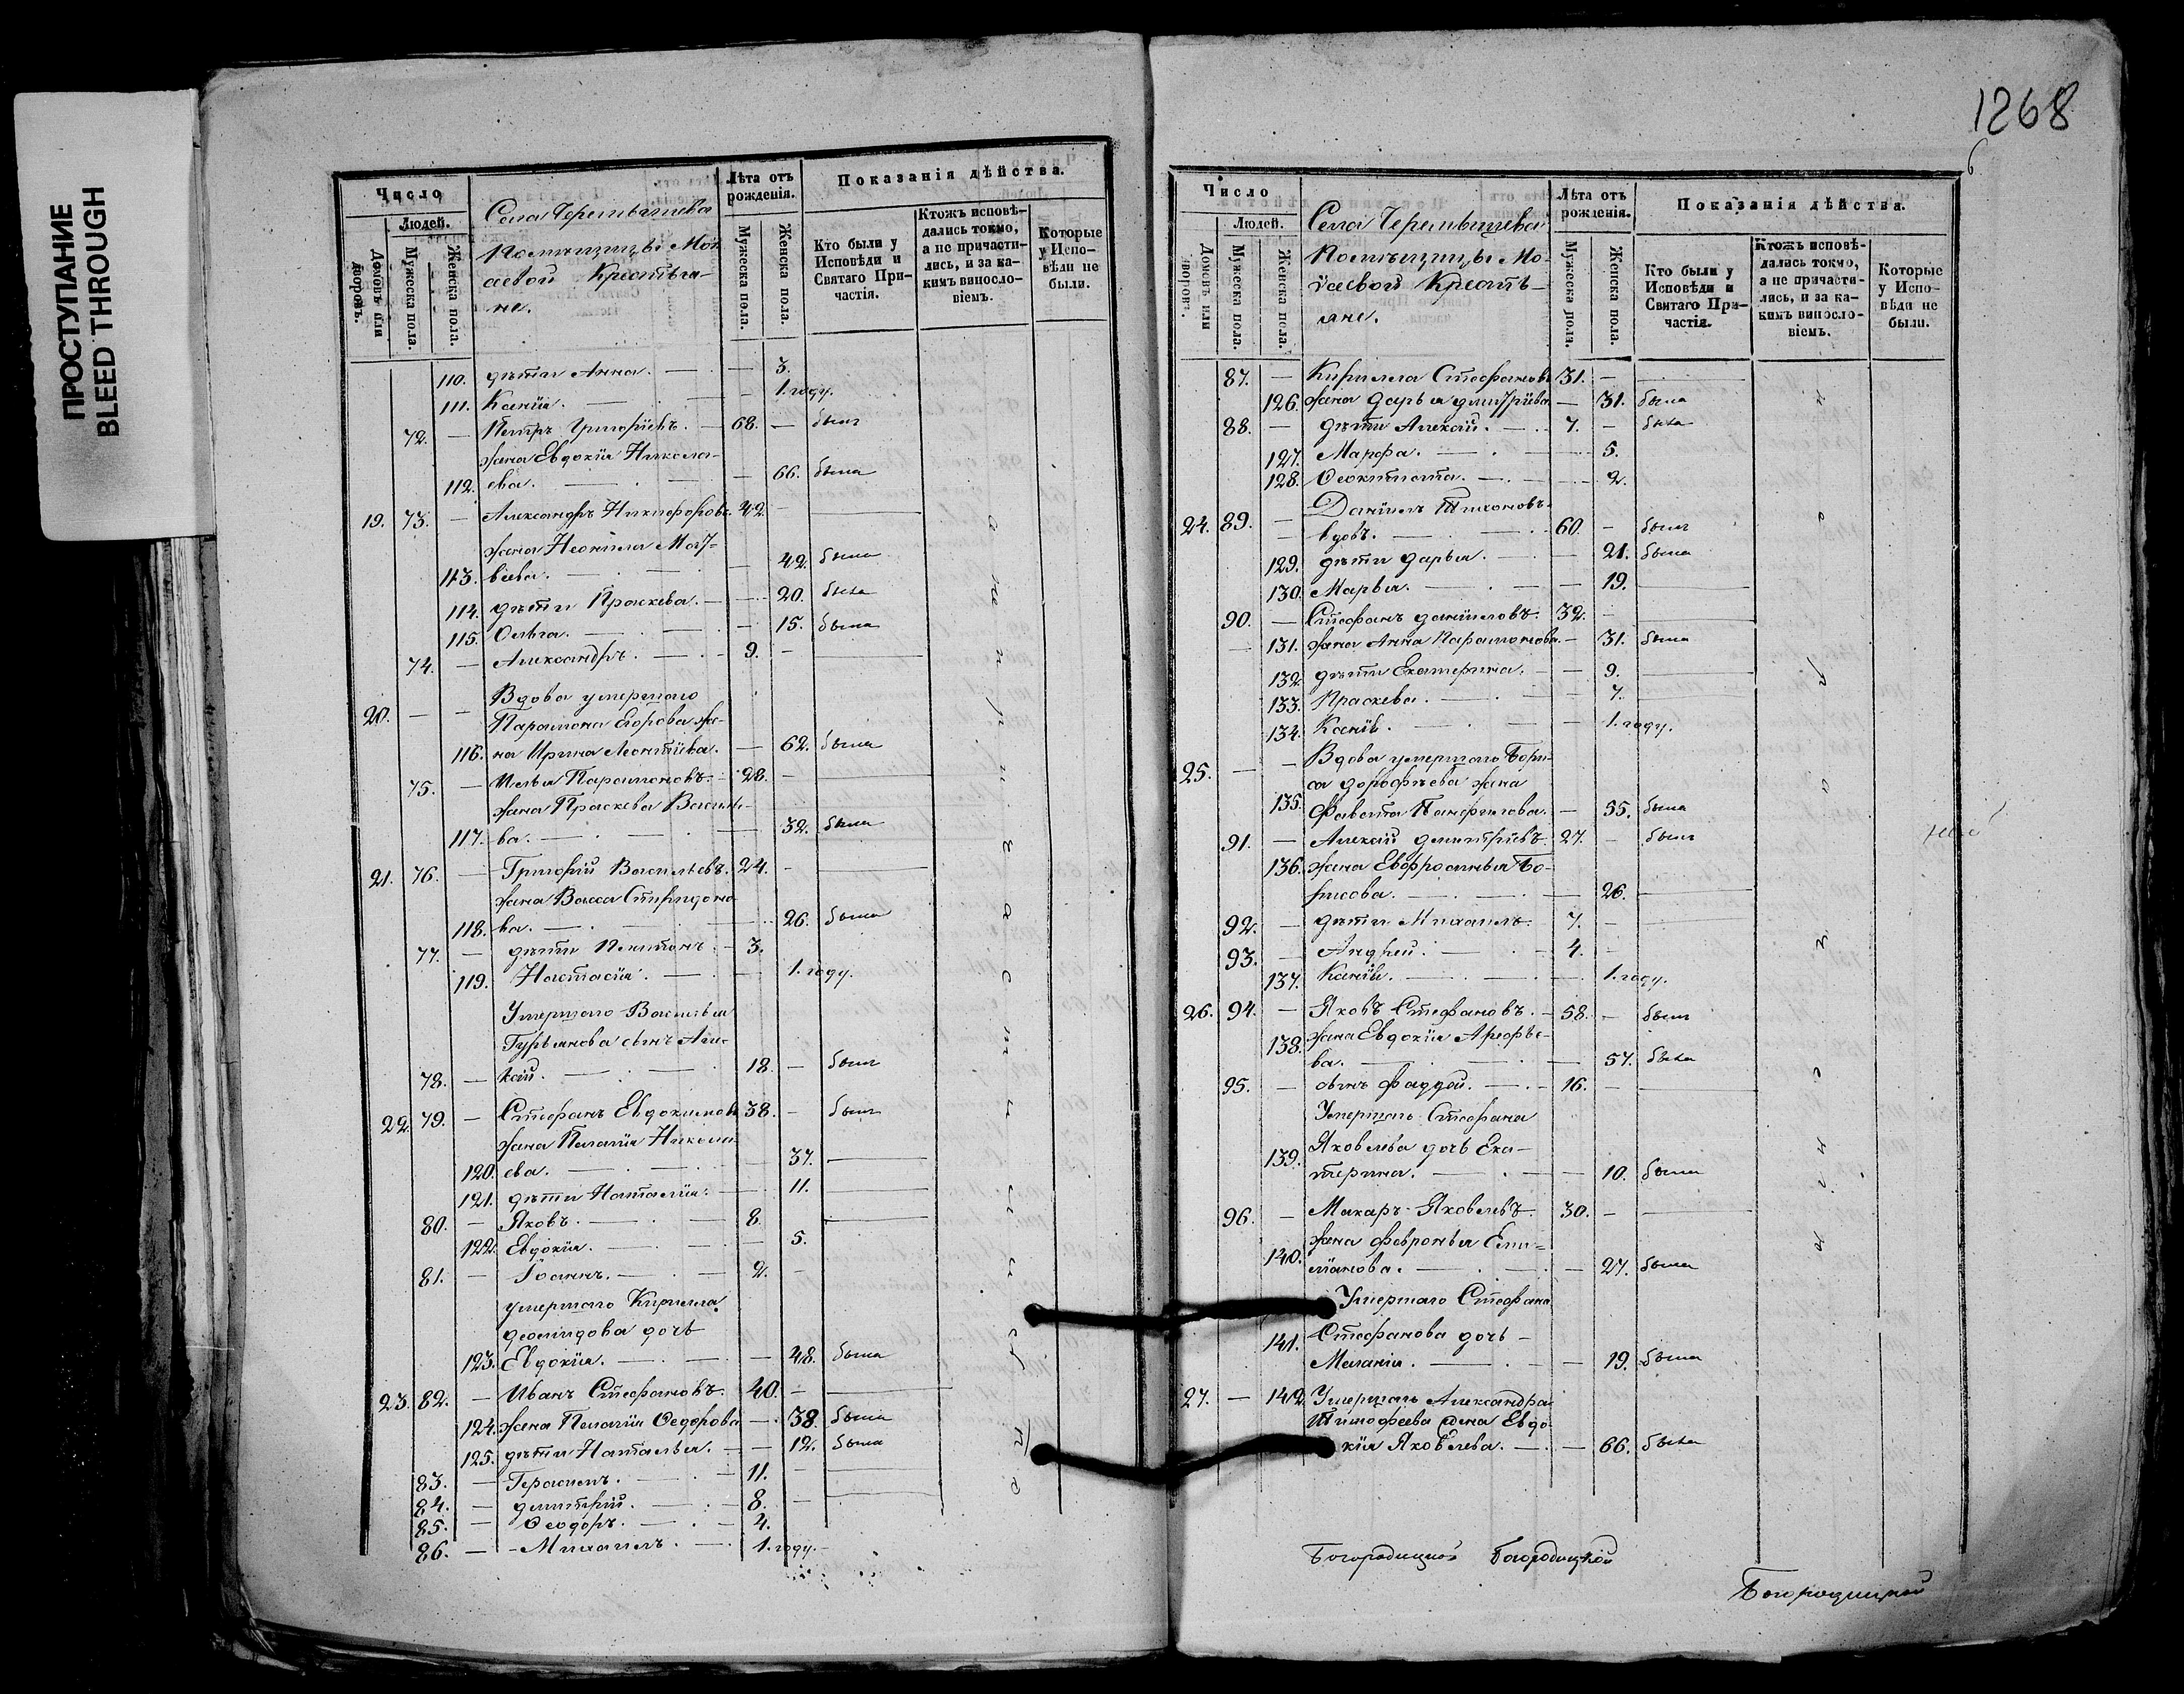 ПРОСТУПАНИЕ
BLEED THROUGH
Число
Людей.
Домовъ или дворовъ.
Мужеска пола.
Женска пола.
Села Черемышева
Помѣщицы Мой-
аевой Крестья-
не.
Лѣта отъ рожденія.
Мужеска пола.
Женска пола.
Показанія дѣйства.
Кто были у Исповѣди и Святаго Причастія.
Ктожъ исповѣ-
дались токмо,
а не причасти-
лись, и за ка-
кимъ винословіемъ.
Которые у Исповѣди не были.
110. дѣти Анна. — 3.
111. Ксенія. — 1. году.
72. — Петръ Григорьевъ. — 68. — былъ
жена Евдокія Никола-
112. ева. — 66. была
19. 73. — Александръ Никифоровъ. 42. —
жена Неонила Мат-
113. вѣева. — 42. была
114. дѣти Праскева. — 20. была
115. Ольга. — 15. была
74. — Александръ. — 9. —
20. — — Вдова умершаго
Парамона Егорова же-
116. на Ирина Леонтіева. — 62. была
75. — Илья Парамоновъ. 28. —
жена Праскева Василь-
117. ва. — 32. была
21. 76. — Григорій Васильевъ. 24. —
жена Васса Спиридоно-
118. ва. — 26. была
77. — дѣти Платонъ. — 3.
119. Настасія. — 1. году.
Умершаго Василья
Гурьянова сынъ Але-
78. — ксѣй. — 18. — былъ
22. 79. — Стефанъ Евдокимовъ 38. — былъ
жена Пелагія Никола-
120. ева. — 37.
121. дѣти Наталія. — 11.
80. — Яковъ. — 8.
122. Евдокія. — 5.
81. — Іоаннъ. — 2. —
умершаго Кирилла
Демидова дочь
123. Евдокія. — 48. была
23. 82. — Иванъ Стефановъ. 40. —
124. жена Пелагія Ѳедорова — 38. была
125. дѣти Наталья. — 12. была
83. — Герасимъ. — 11. —
84. — Димитрій. — 8. —
85. — Ѳеодоръ. — 4.
86. — Михаилъ. — 1. году.
1268
6
Число
Людей.
Домовъ или дворовъ.
Мужеска пола.
Женска пола.
Села Черемышева
Помѣщицы Мо-
ѵаевой Кресть-
яне.
Лѣта отъ рожденія.
Мужеска пола.
Женска пола.
Показанія дѣйства.
Кто были у Исповѣди и Святаго Причастія.
Ктожъ исповѣ-
дались токмо,
а не причасти-
лись, и за ка-
кимъ винословіемъ.
Которые у Исповѣди не были.
87. — Кирилла Стефановъ 31. —
126. жена Дарья Дмитріева — 31. была
88. — дѣти Алексѣй. — 7. — былъ
127. Марфа. — 5.
128. Ѳеоктиста. — 2.
24. 89. — Даніилъ Тихоновъ
— вдовъ. — 60. — былъ
129. дѣти Дарья. — 21. была
130. Марья. — 19.
90. — Стефанъ Даниловъ. 32. —
131. жена Анна Парамонова. — 31. была
132. дѣти Екатерина. — 9.
133. Праскева. — 7.
134. Ксенія. — 1. году.
25. — — Вдова умершаго Бори-
са Дорофѣева жена
135. Фавста Панфилова. — 55. была
91. — Алексѣй Димитріевъ. 27. — былъ
136. жена Евфросинья Бо-
рисова. — 26.
92. — дѣти Михаилъ. 7. —
93. — Андрей. — 4. —
137. Ксенія. — 1. году.
26. 94. — Яковъ Стефановъ. — 58. — былъ
138. жена Евдокія Арефье-
ва. — 57. была
95. — сынъ Фаддѣй. — 16. —
Умершаго Стефана
139. Яковлева дочь Ека-
терина. — 10. была
96. — Макаръ Яковлевъ. 30. —
жена Февронья Еми-
140. ліанова. — 27. была
Умершаго Стефана
141. Стефанова дочь
Меланія. — 19. была
27. — 142. Умершаго Александра
Тимофеева жена Евдо-
кія Яковлева. — 66. была
Богородицкой Богородицкой
Богородицкой